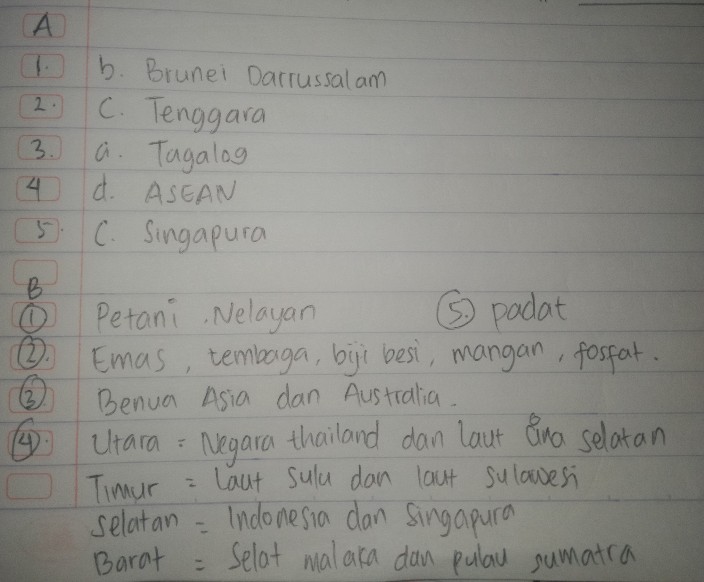 A
1. b. Brunei Darrussalam
2. C. Tenggara
3. a. Tagalog
4 d. ASEAN
5. C. Singapura
B
1 Petani . Nelayan 5. padat
2. Emas, tembaga, biji besi, mangan, fosfat.
3 Benua Asia dan Australia.
4. Utara = Negara thailand dan laut Cina selatan
Timur = Laut Sulu dan laut sulawesi
Selatan = Indonesia dan Singapura
Barat = Selat malaka dan pulau sumatra